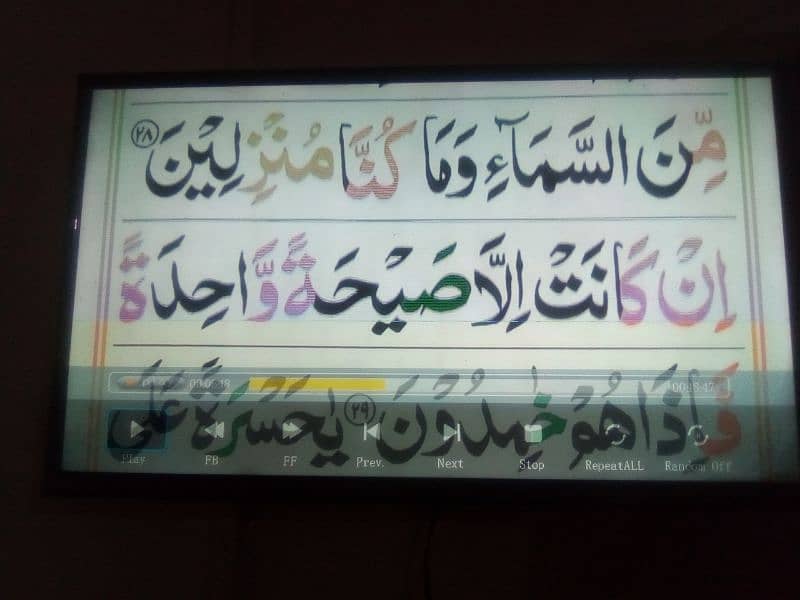 مِّنَ السَّمَآءِ وَمَا كُنَّا مُنْزِلِيْنَ ۲۸
اِنْ كَانَتْ اِلَّا صَيْحَةً وَّاحِدَةً
فَاِذَا هُمْ خٰمِدُوْنَ ۲۹ يٰحَسْرَةً عَلَى
Play FB FF Prev. Next Stop RepeatALL Random Off